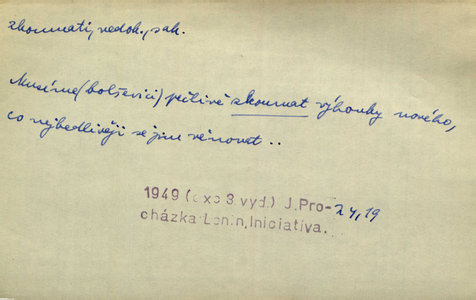 zkoumati, nedok., zak.
Musíme (bolševici) pečlivě zkoumat výhonky nového,
co nejbedlivěji se jim věnovat ..
1949 (exc 3. vyd.) J. Pro- 24, 19
cházka: Lenin, Iniciativa.